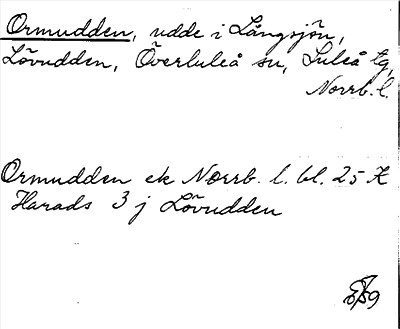 Ormudden, udde i Långsjön,
Lövudden, Överluleå sn, Luleå tg,
Norrb. l.
Ormudden ek Norrb. l. bl. 25 K
Harads 3 j Lövudden